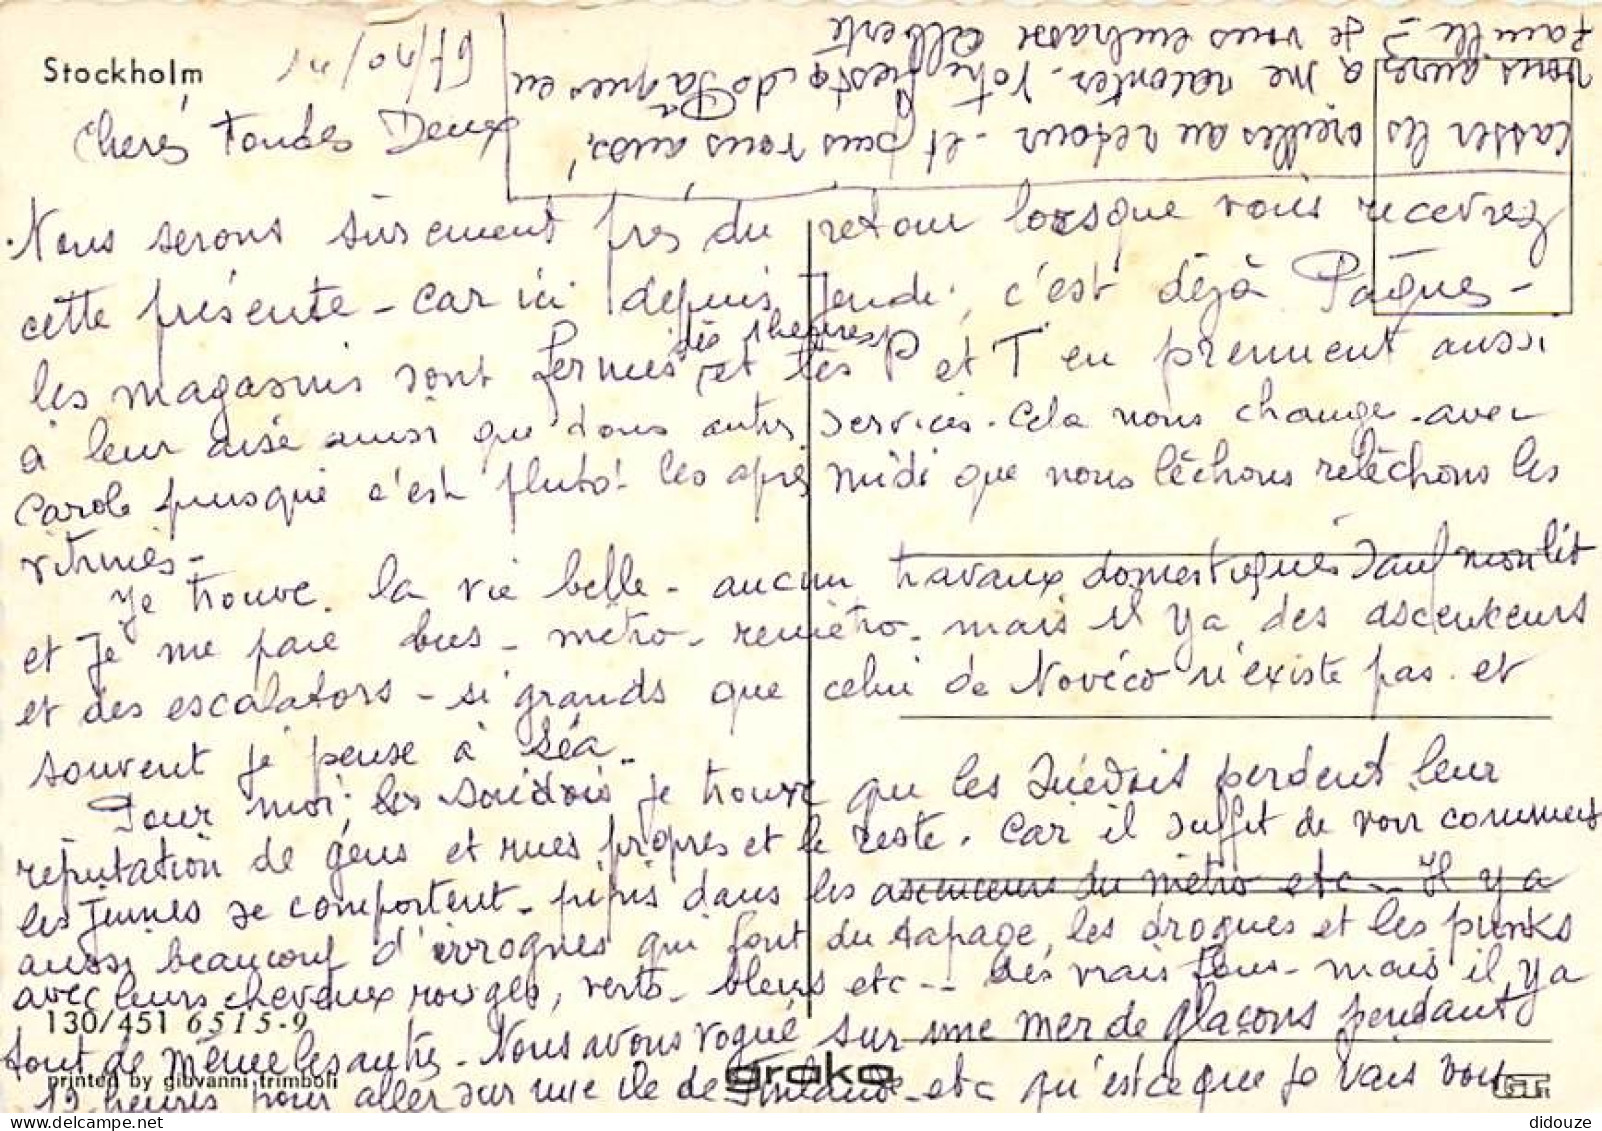 Stockholm
Chères Toudes Deux
Nous serons sûrement près du retour lorsque vous recevrez
cette présente - car ici depuis Jeudi, c'est déjà Pâques -
les magasins sont fermés dès heures et les P et T en prennent aussi
à leur aise ainsi que dans autres services. Cela nous change avec
Carole puisque c'est plutôt les après midi que nous lèchons relèchons les
vitrines -
Je trouve la vie belle - aucun travaux domestiques sauf mon lit
et Je me paie bus - métro - remétro - mais il y a des ascenseurs
et des escalators - si grands que celui de Novéco n'existe pas et
souvent je pense à Léa -
Pour moi, les Suédois je trouve que les Suédois perdent leur
réputation de gens et rues propres et le reste. Car il suffit de voir comment
les jeunes se comportent - pipis dans les ascenceurs du métro etc - Il y a
aussi beaucoup d'ivrognes qui font du tapage, les drogués et les punks
avec leurs cheveux rouges, verts - bleus etc -- des vrais fous - mais il y a
130/451 6515-9
tout de même les autres - Nous avons vogué sur une mer de glaçons pendant
printed by giovanni trimboli
grako
GT
12 heures pour aller sur une île de - etc qu'est ce que je vais vous
casser les oreilles au retour - et puis vous aussi,
vous aurez à me raconter - Votre fiesta de Pâques en
famille - Je vous embrasse Alberte
didouze